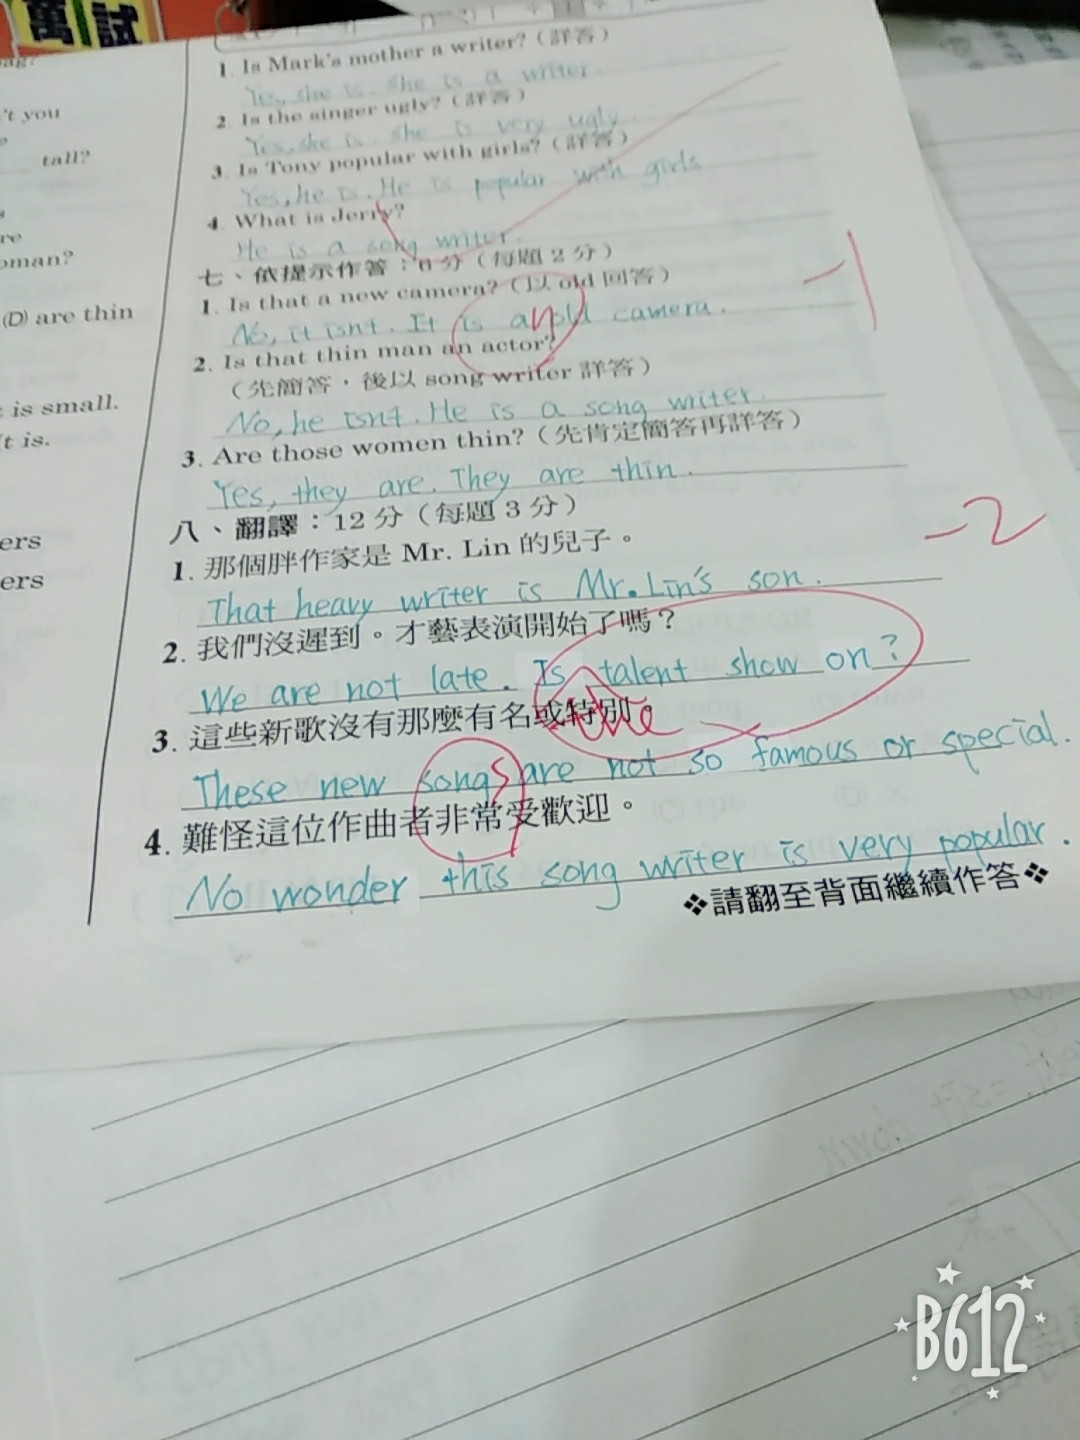 萬試
't you
tall?
oman?
(D) are thin
is small.
It is.
ers
ers
1. Is Mark's mother a writer? (詳答)
Yes, she is. She is a writer.
2. Is the singer ugly? (詳答)
Yes, she is. She is very ugly.
3. Is Tony popular with girls? (詳答)
Yes, he is. He is popular with girls
4. What is Jerry?
He is a song writer.
七、依提示作答：6分（每題2分）
1. Is that a new camera? (以 old 回答)
No, it isn't. It is an old camera.
-1
2. Is that thin man an actor?
（先簡答，後以 song writer 詳答）
No, he isn't. He is a song writer.
3. Are those women thin?（先肯定簡答再詳答）
Yes, they are. They are thin.
八、翻譯：12分（每題3分）
-2
1. 那個胖作家是 Mr. Lin 的兒子。
That heavy writer is Mr. Lin's son.
2. 我們沒遲到。才藝表演開始了嗎？
We are not late. Is talent show on?
the
3. 這些新歌沒有那麼有名或特別。
These new songs are not so famous or special.
4. 難怪這位作曲者非常受歡迎。
No wonder this song writer is very popular.
❖請翻至背面繼續作答❖
B612